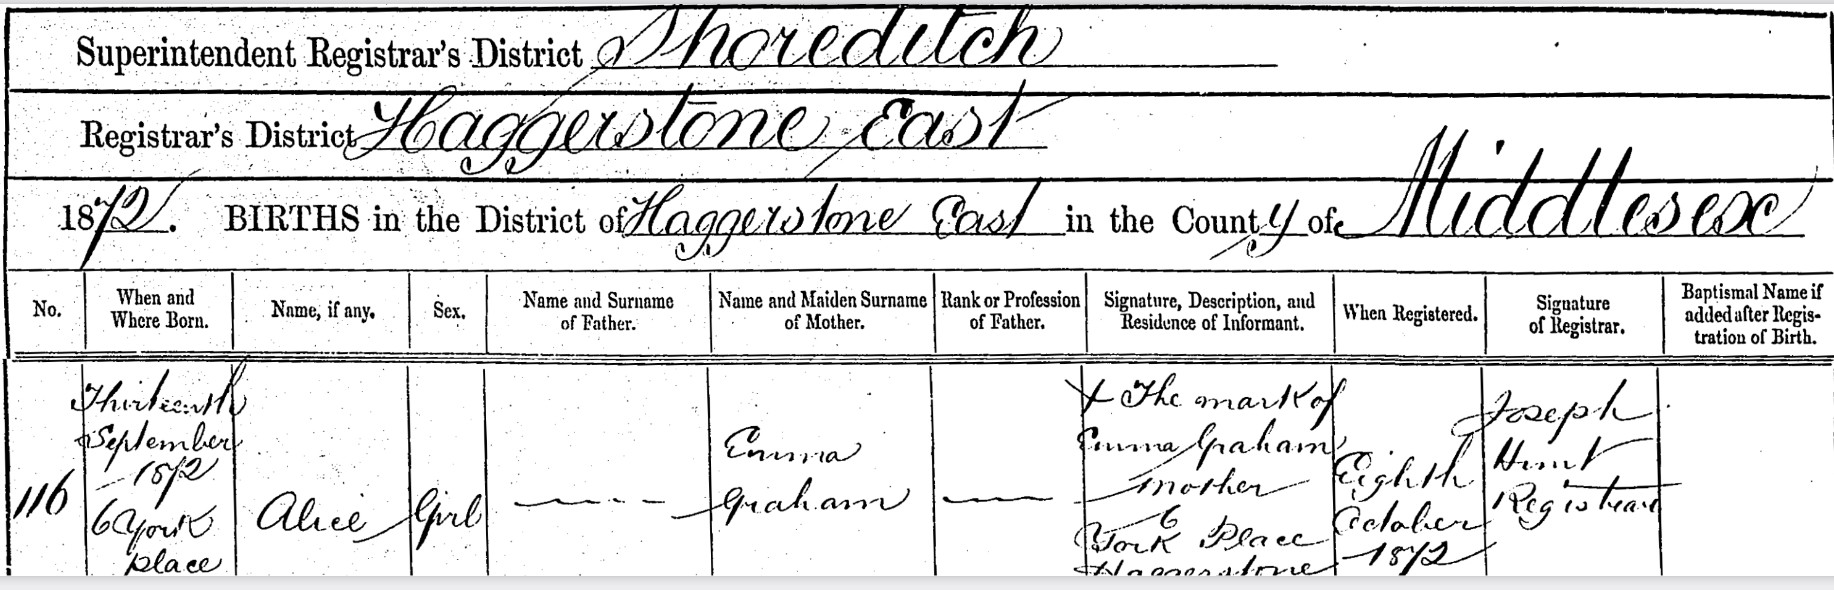 Superintendent Registrar's District Shoreditch
Registrar's District Haggerstone East
1872. BIRTHS in the District of Haggerstone East in the County of Middlesex
No.
When and
Where Born.
Name, if any.
Sex.
Name and Surname
of Father.
Name and Maiden Surname
of Mother.
Rank or Profession
of Father.
Signature, Description, and
Residence of Informant.
When Registered.
Signature
of Registrar.
Baptismal Name if
added after Regis-
tration of Birth.
116
Thirteenth
September
1872
6 York
place
Alice
Girl
Emma
Graham
X The mark of
Emma Graham
Mother
6
York Place
Haggerstone
Eighth
October
1872
Joseph
Hunt
Registrar